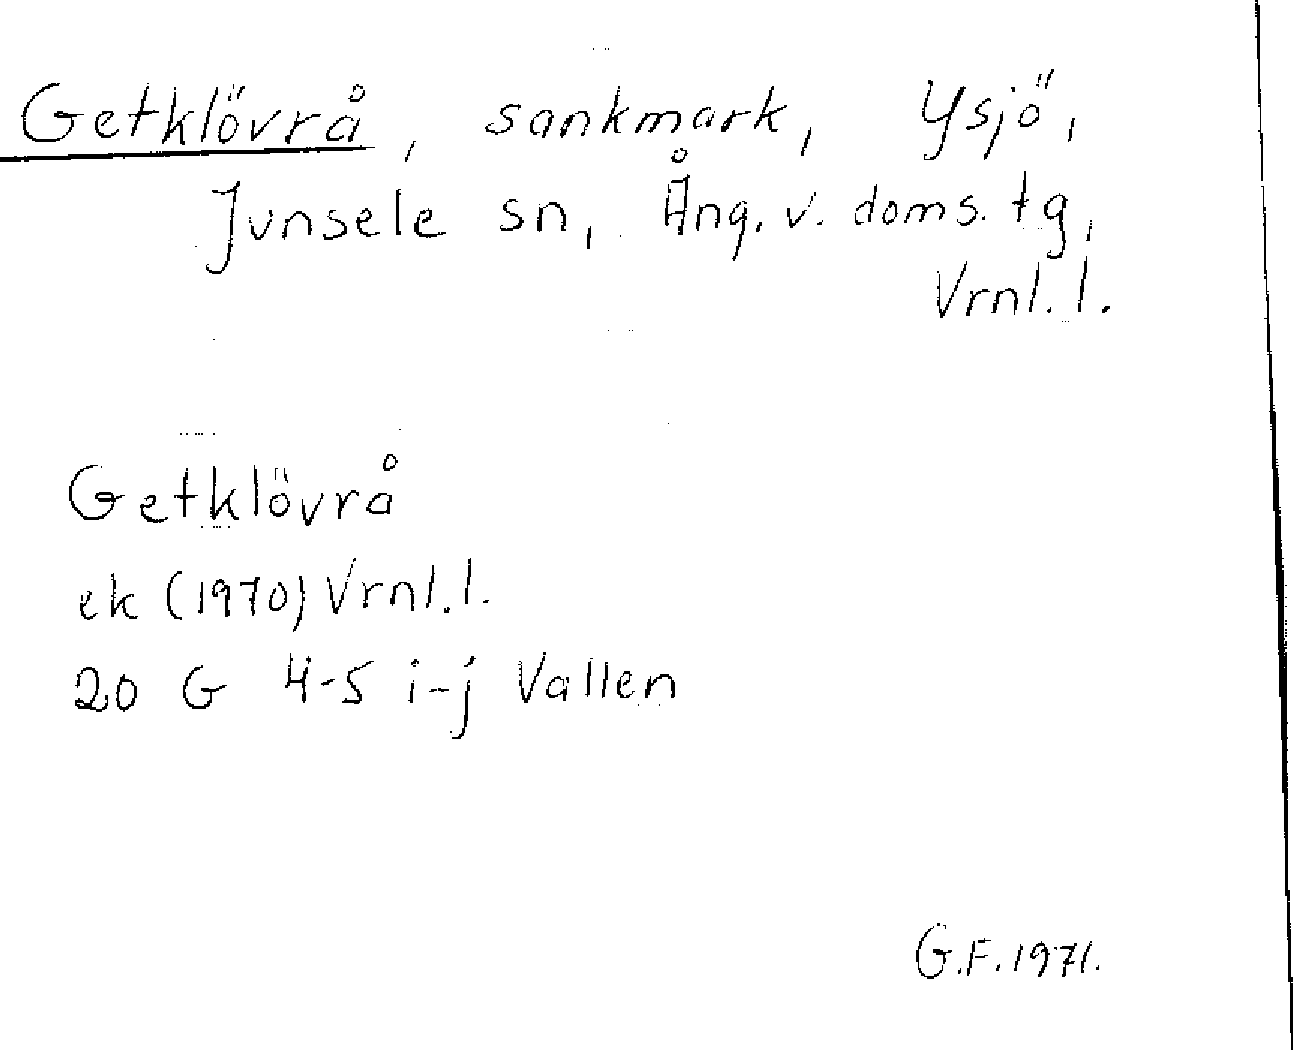 Getklövrå, sankmark, Ysjö,
Junsele sn, Ång. v. doms. tg,
Vrnl. l.
Getklövrå
ek (1970) Vrnl. l.
20 G 4-5 i-j Vallen
G.F. 1971.